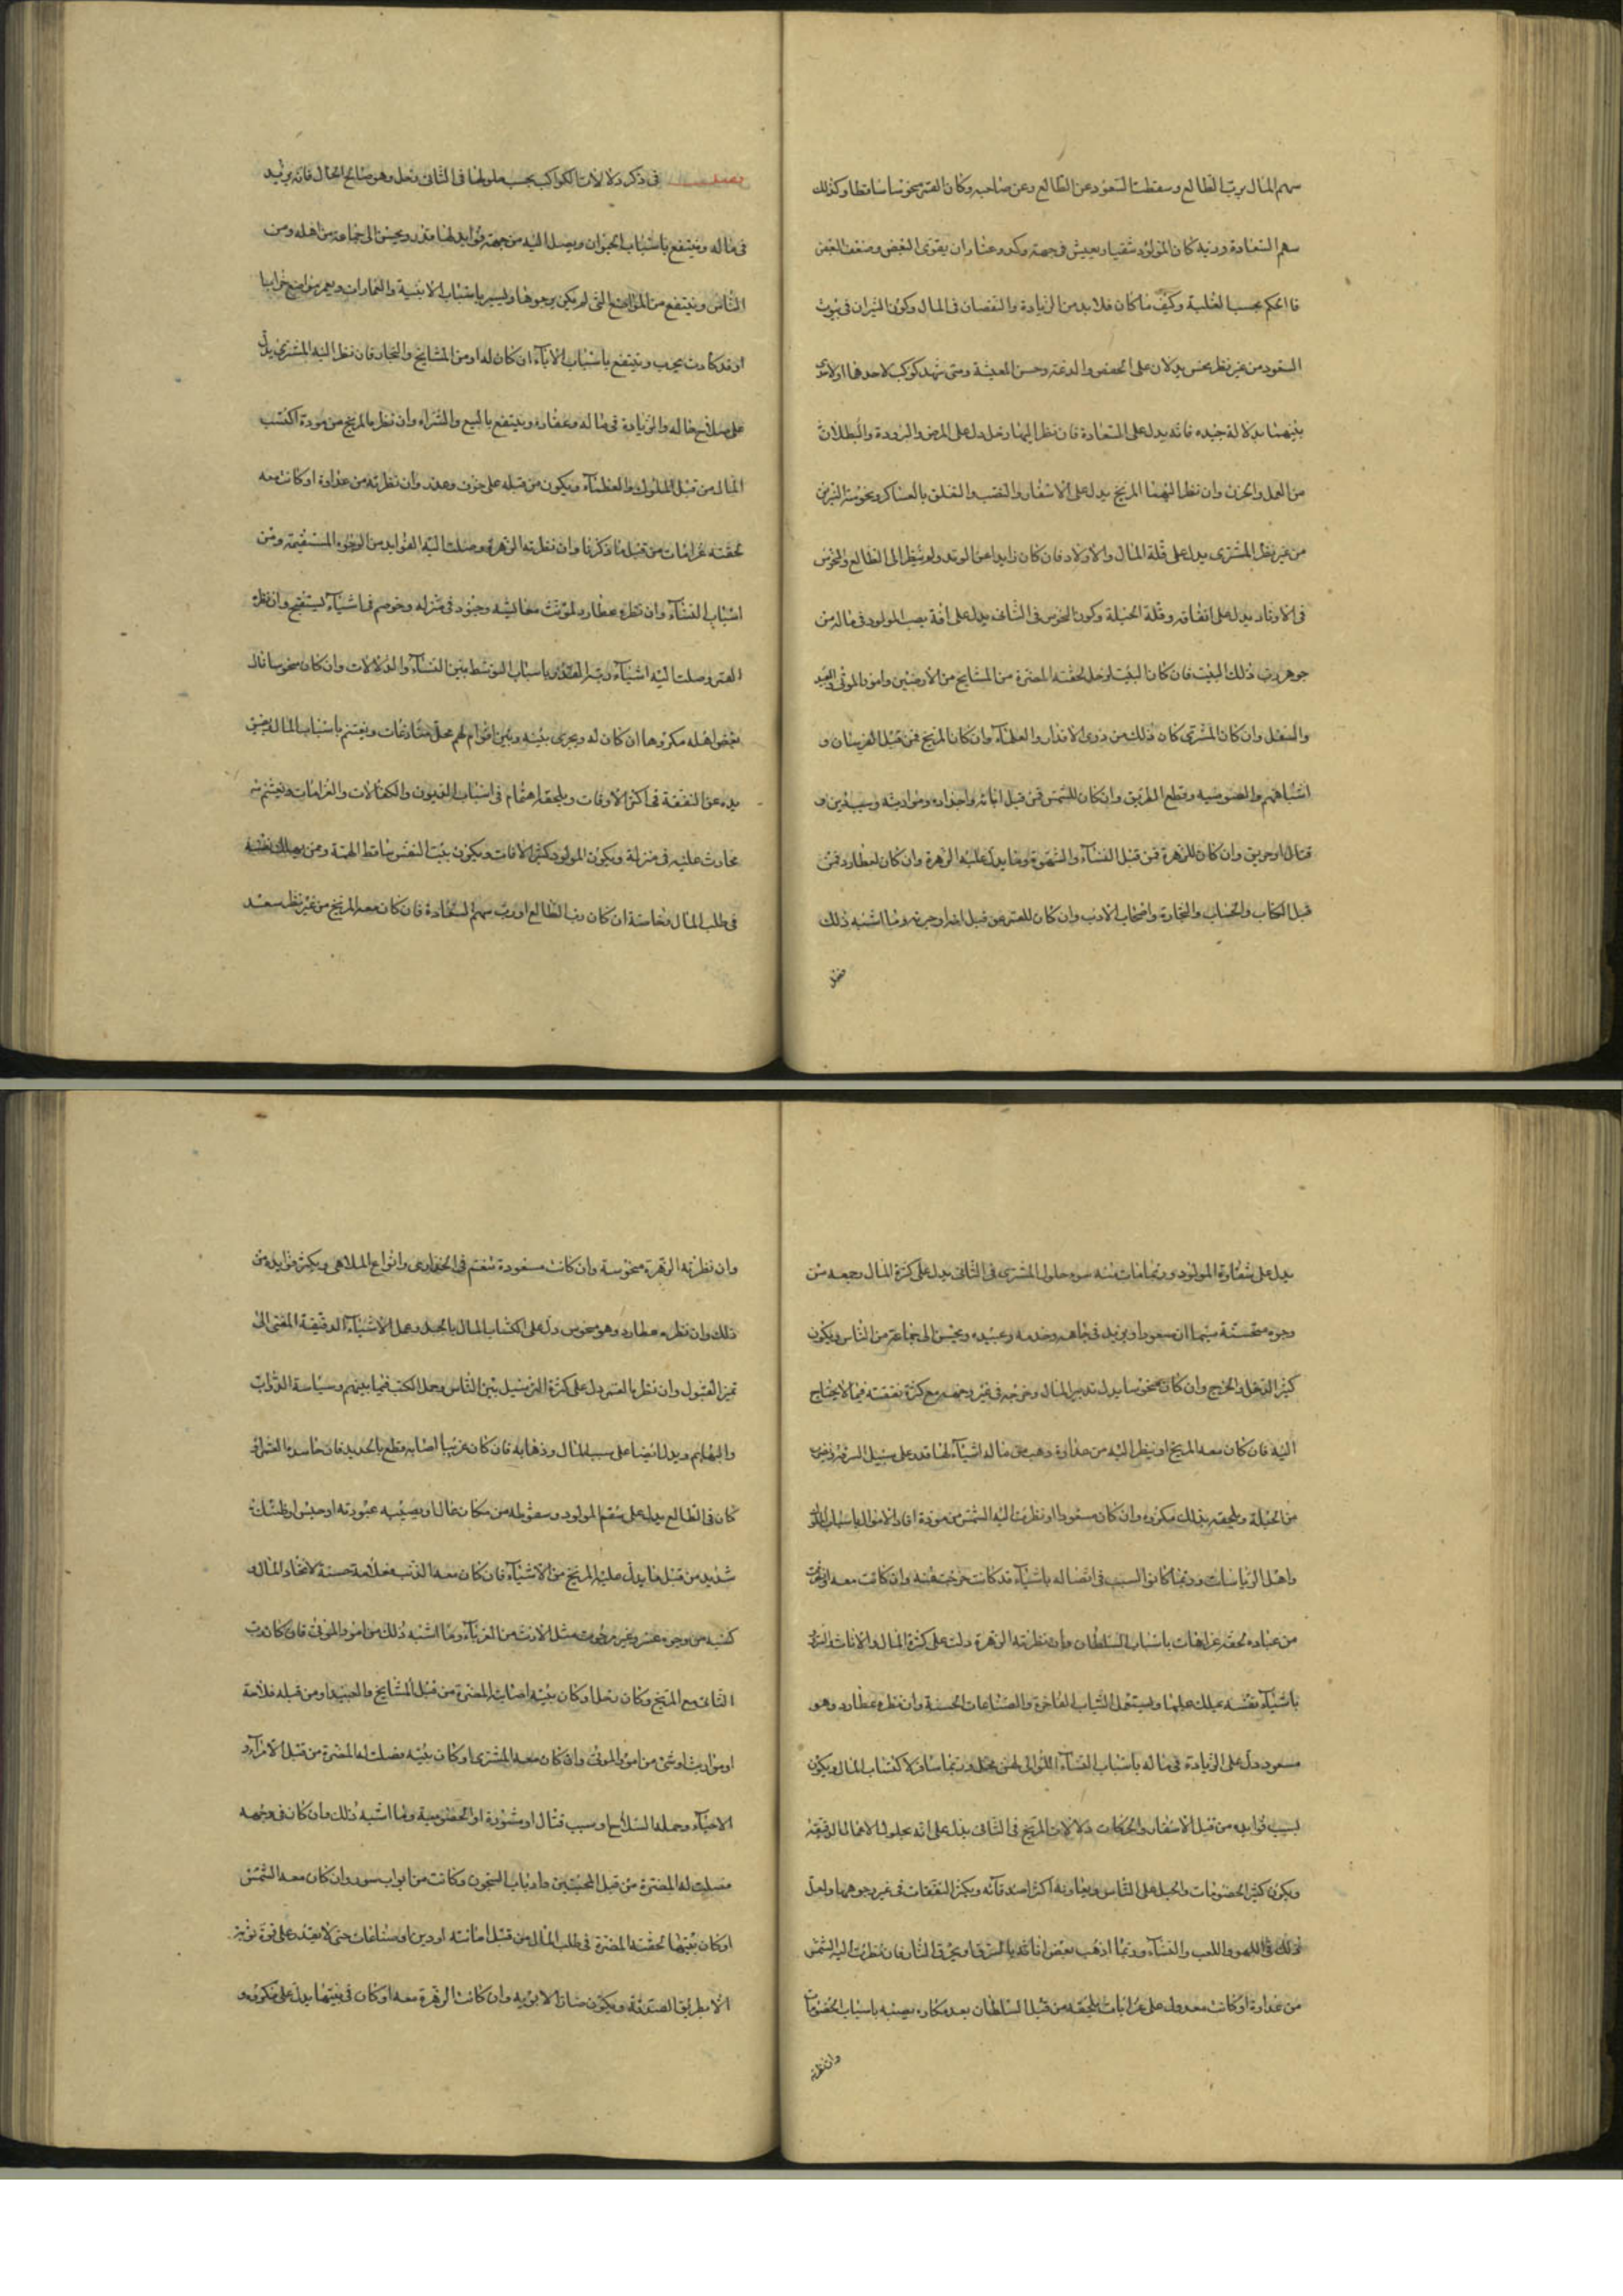 سهم المال برب الطالع وسقطت السعود عن الطالع وعن صاحبه وكان القمر منحوسا ساقطا وكذلك
سهم السعادة وربه كان المولود شقيا ويعيش في جهد وكد وعنا وان يقوى البعض وضعف البعض
فالحكم بحسب الغلبة وكيف ما كان فلا بد من الزيادة والنقصان في المال وكون النيران في بيوت
السعود من غير نظر نحس يدلان على الخفض والدعة وحسن المعيشة ومتى شهد كوكب لاحدهما او لاحد
بيتهما بدلالة جيده فانه يدل على السعادة فان نظر اليهما زحل دل على المرض والبرودة والبطلان
من العمل والحزن وان نظر اليهما المريخ يدل على الاسفار والتعب والقلق بالعساكر ونحوسة النيرين
من غير نظر المشترى يدل على قلة المال والاولاد فان كان زايدا عن الوتد ولم ينظر الى الطالع والنحوس
في الاوتاد يدل على انفاقه وقلة الحيلة وكون النحوس في الثاني يدل على افة تصيب المولود في ماله من
جوهر رب ذلك البيت فان كان البيت لزحل لحقته المضرة من المشايخ من الارضين وامور الموتى والعبيد
والسفل وان كان المشترى كان ذلك من ذوى الاقدار والعلماء وان كان المريخ فمن قبل الفرسان و
اشباههم واللصوصيه وقطع الطريق وان كان للشمس فمن قبل ابائه واجداده ومواريثه وسبب دين و
قتال او حريق وان كان للزهرة فمن قبل النساء والشهوة وما يدل عليه الزهرة وان كان لعطارد فمن
قبل الكتاب والحساب والتجارة واصحاب الادب وان كان للقمر فمن قبل امه او حرمه وما اشبه ذلك
فصل
فصل في ذكر دلالات الكواكب بحسب حلولها في الثاني زحل وهو صالح الحال فانه يزيد
في ماله وينتفع باسباب الحيوان ويصل اليه من جهته فوايد لها قدر ويحسن الى جماعة من اهله ومن
الناس وينتفع من المواضع التي لم يكن يرجوها ويسير باسباب الابنية والعمارات ويعمر مواضع خرابا
او قد كادت تخرب وينتفع باسباب الاباء ان كان له او من المشايخ والتجار فان نظر اليه المشترى يدل
على صلاح حاله والزيادة في ماله وعقاره وينتفع بالبيع والشراء وان نظره المريخ من مودة اكتسب
المال من قبل الملوك والعظماء ويكون من قبله على حزن وهم وان نظره من عداوة او كانت معه
لحقته غرامات من قبل ما ذكرنا وان نظرته الزهرة وصلت اليه الفوايد من الوجوه المستقيمة ومن
اسباب النساء وان نظره عطارد لم تؤنث معايشه وجنود في منزله وخوصم في اشياء يستقبح وان نظره
القمر وصلت اليه اشياء باسباب التوسط بين النساء والدلالات وان كان منحوسا نال
بعض اهله مكروها ان كان له ويجرى بينه وبين اقوام لهم محل منازعات ويغتم باسباب المال ويضيق
يده عن النفقة في اكثر الاوقات ويلحقه اهتمام في اسباب الديون والكفالات والغرامات ويغتم من
حادث عليه في منزله ويكون المولود كثير الافات ويكون ساقط الهمة ومن يهلك نفسه
في طلب المال وخاصة ان كان رب الطالع او رب سهم السعادة فان كان معه المريخ من غير نظر سعد
يدل على شقاوة المولود وربما مات منه حلول المشترى في الثاني يدل على كثرة المال وجمعه من
وجوه مستحسنة سيما ان مسعودا ويزيد في جاهه وخدمه وعبيده ويحسن الى جماعة من الناس ويكون
كثير الدخل والخرج وان كان منحوسا يدل تبذير المال وخرجه في غير وجهه مع كثرة نفقته فيما لا يحتاج
اليه فان كان معه المريخ او ينظر اليه من عداوة ذهب من ماله اشياء لها قدر على سبيل السرقة وضرب
من الحيلة ويلحقه بذلك مكروه وان كان مسعودا او نظرت اليه الشمس من مودة افاد الاموال باسباب الملوك
واهل الرياسات وربما كانوا السبب في اتصاله باشياء قد كانت خرجت عنه وان كانت معه او نظرت
من عداوة لحقه غرامات باسباب السلطان وان نظرته الزهرة دلت على كثرة المال والاناث
باشياء نفيسه يملك عليها ويستعمل الثياب الفاخرة والصناعات الحسنة وان نظره عطارد وهو
مسعود دل على الزيادة في ماله باسباب النساء اللواتي لهن محل وربما سافر لاكتساب المال ويكون
لسبب فوايده من قبل الاسفار والحركات دلالات المريخ في الثاني يدل على انه يحاول الاعمال الدقيقة
ويكون كثير الخصومات والحيل على الناس ويعاونه اكثر اصدقائه ويكثر النفقات في غير وجوهها ولعل
ذلك في اللهو واللعب والنساء وربما اذهب بعض اثاثه بالسرقة او بحرق النار فان نظرت اليه الشمس
من عداوة او كانت معه دل على غرامات يلحقه من قبل السلطان بعد مكاره يصيبه باسباب الخصومات
وان نظرته
وان نظرته الزهرة منحوسة وان كانت مسعودة تنعم في الجواري وانواع الملاهي ويكثر فوايده من
ذلك وان نظره عطارد وهو منحوس دل على اكتساب المال بالحيل وعمل الاشياء الدقيقة
القبول وان نظره القمر دل على كثرة الترسيل بين الناس وحمل الكتب فيما بينهم وسياسة الدواب
والبهايم ويدل ايضا على سبب المال وذهابه فان كان غريبا اصابه قطع بالحديد فان القمر او
كان في الطالع يدل على سقم المولود وسقوطه من مكان عال او يصيبه عبودته او حبس او ظنك
شديد من قبل ما يدل عليه المريخ من الاشياء فان كان معه الذنب فعلامة حسنة لاتخاذ المال و
كسبه من وجوه عسر وغير مرضية مثل الارث من الغرباء وما اشبه ذلك من امور الموتى فان كان رب
الثاني مع المريخ وكان زحل او كان بيته اصابته المضرة من قبل المشايخ والعبيد او من قبله فلاحة
او مواريث او شئ من امور الموتى وان كان معه المشترى او كان بيته وصلت له المضرة من قبل الامراء و
الاحياء وحمله السلاح او سبب قتال او مشورة او الخصومية وما اشبه ذلك وان كان في وجهه
فصلت له المضرة من قبل المحبسين وارباب السجون وكانت من ابواب وان كان معه الشمس
او كان بيتها لحقته المضرة في طلب المال من قبل امانته او دين او حتى لا يقدر على قوة
الا بطريق الصدقة ويكون ضارا لابويه وان كانت الزهرة معه او كان في بيتها يدل على مكروه و